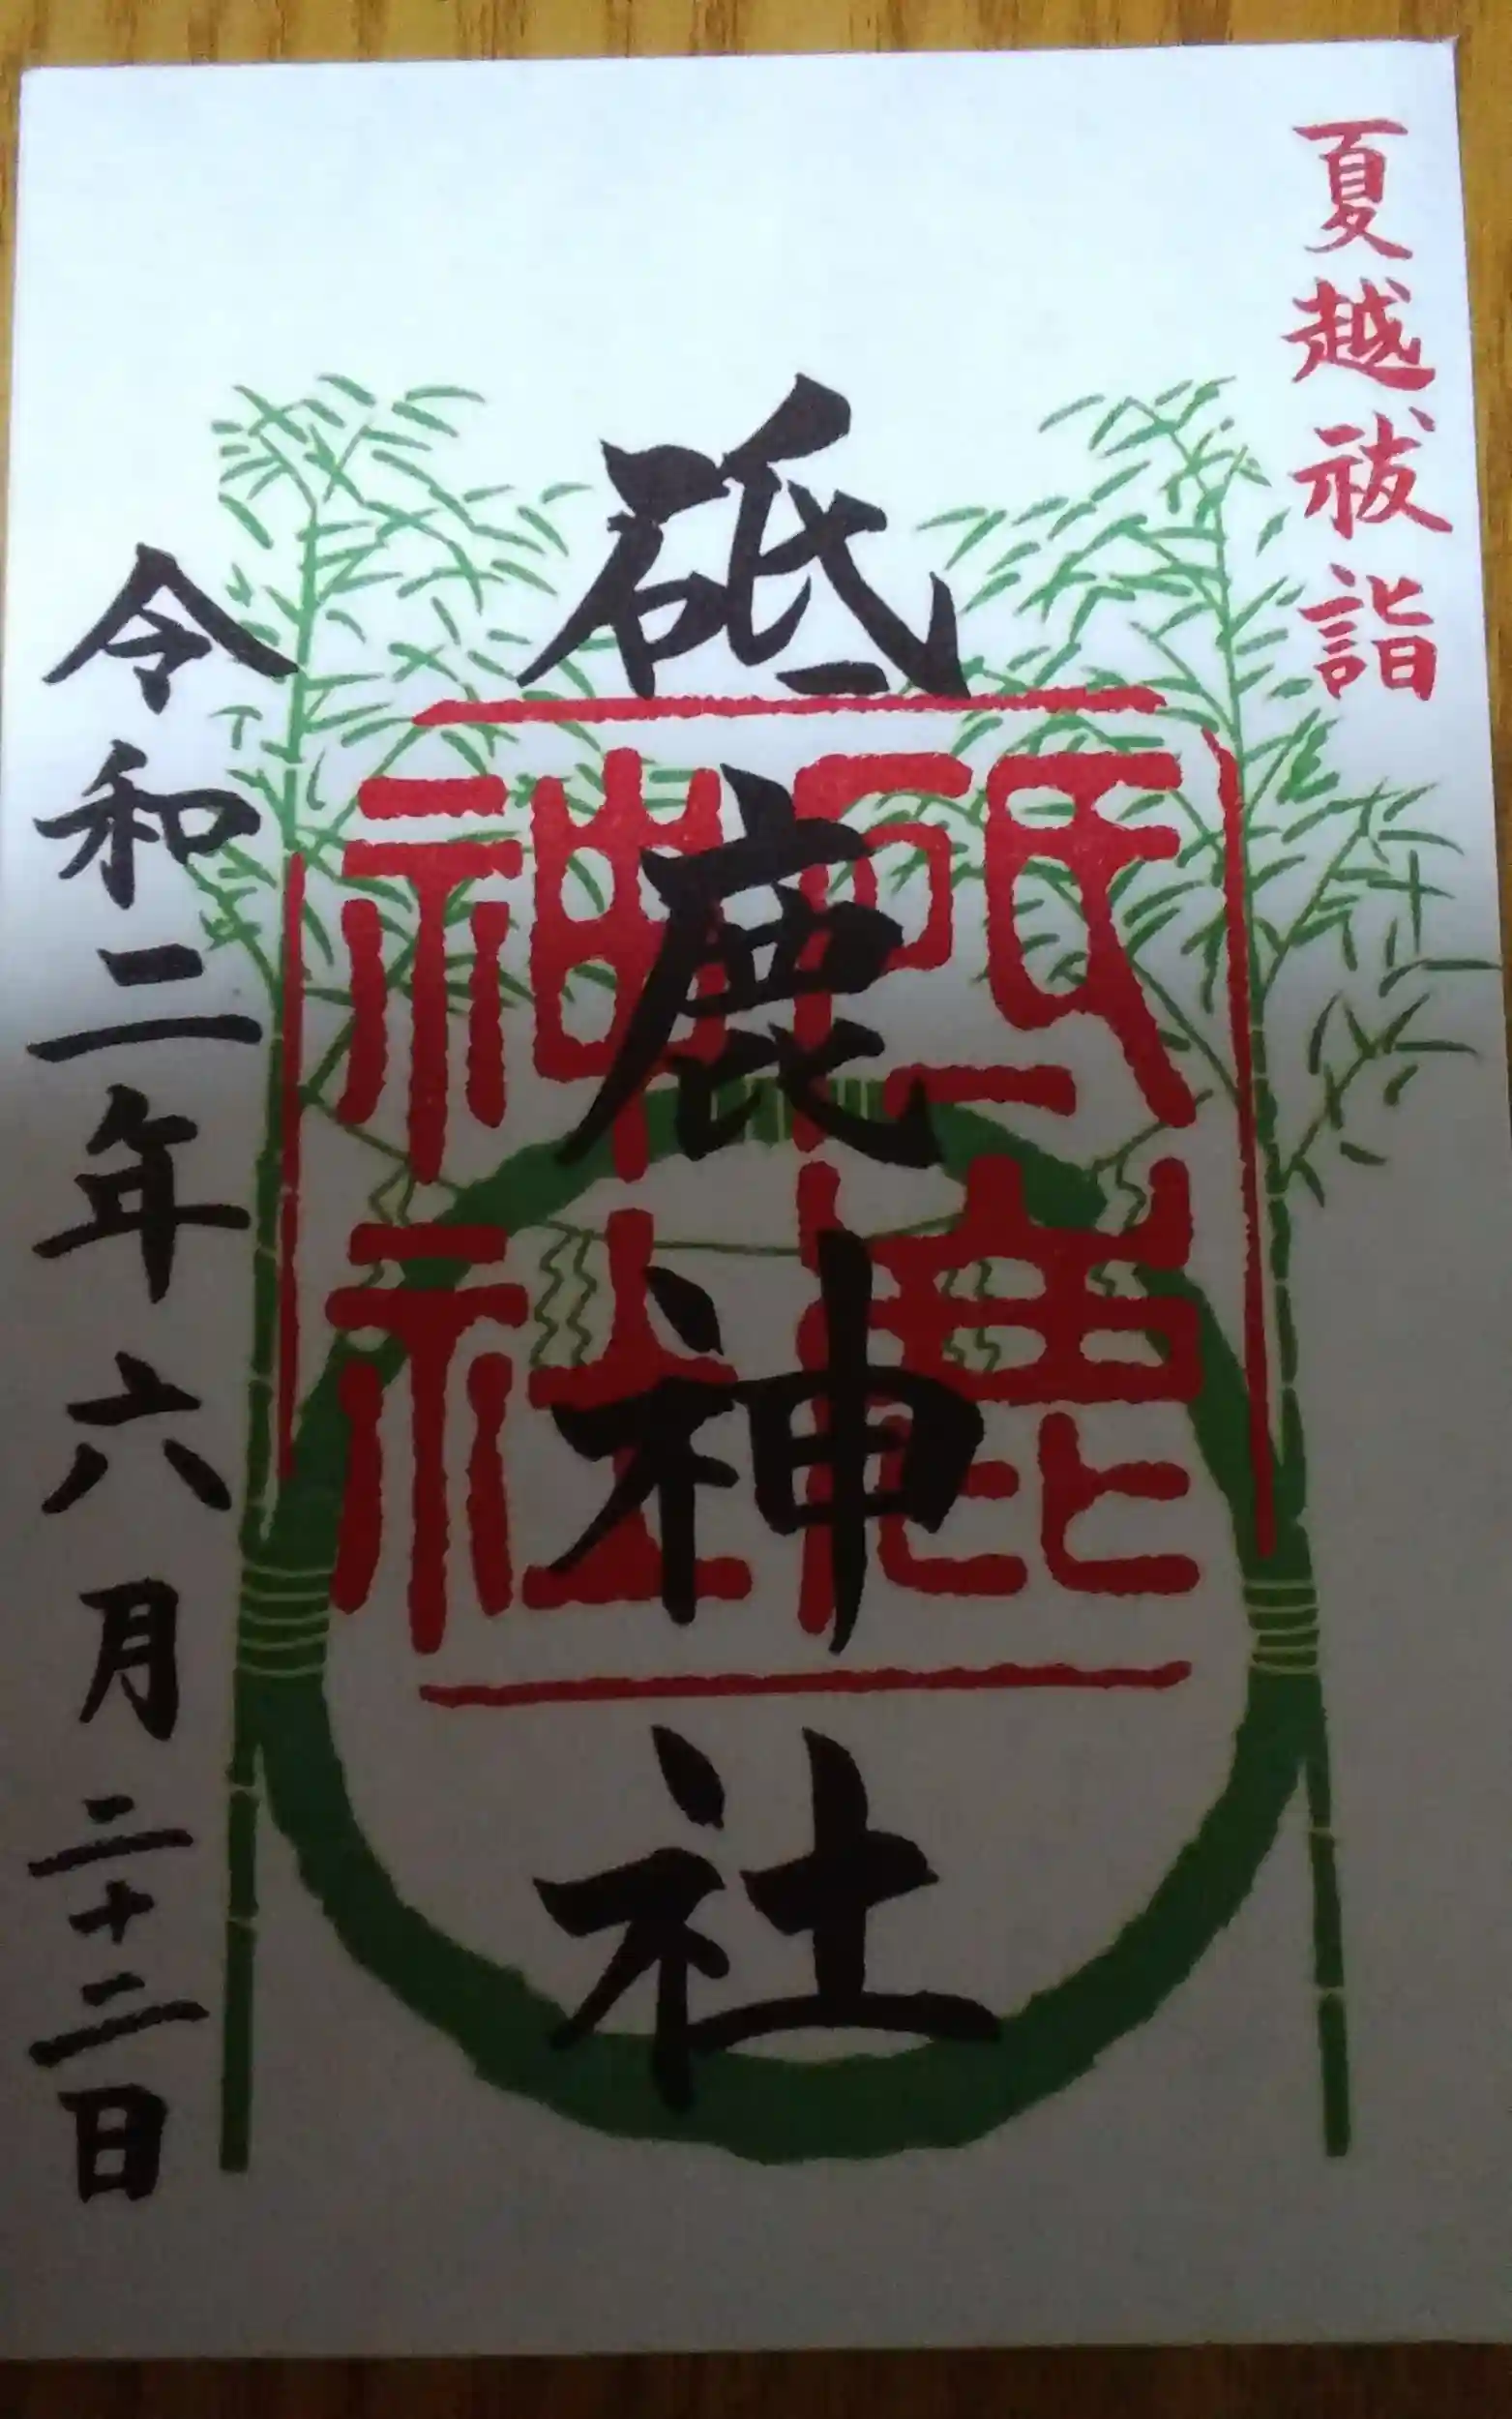 夏越祓詣
砥鹿神社
砥鹿
神社
令和二年六月二十二日